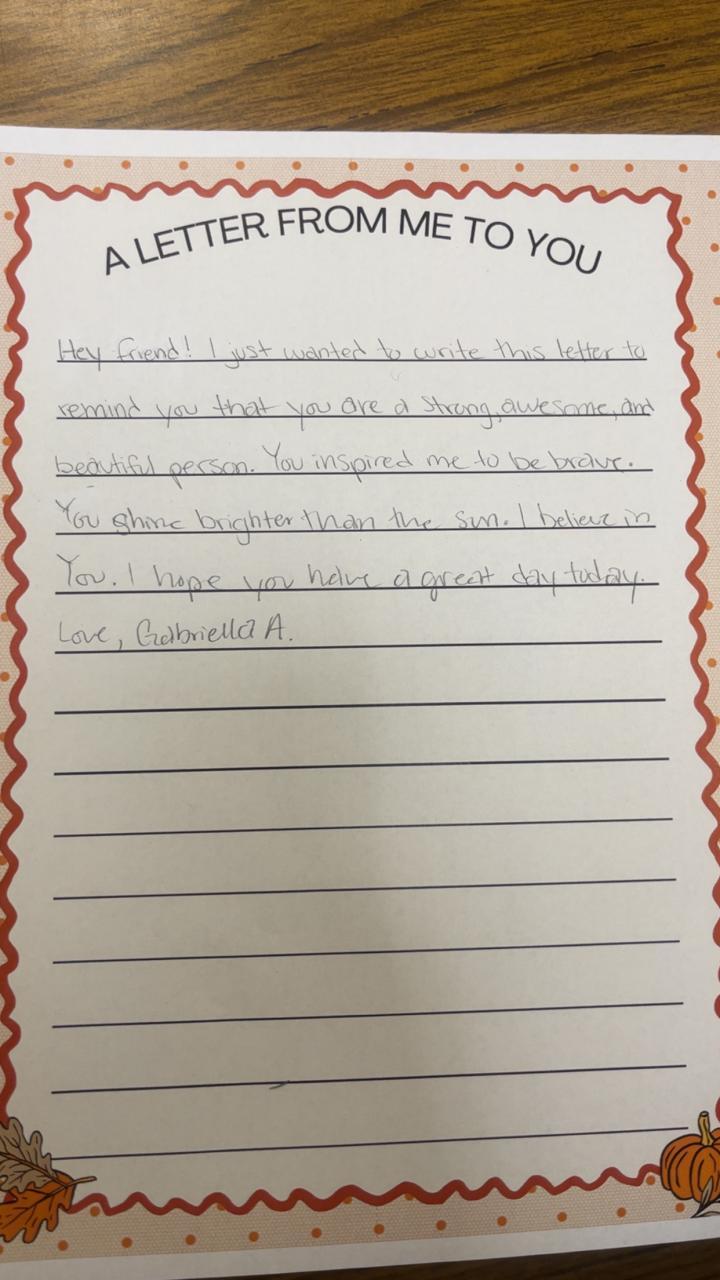 A LETTER FROM ME TO YOU
Hey friend! I just wanted to write this letter to
remind you that you are a strong, awesome, and
beautiful person. You inspired me to be brave.
You shine brighter than the sun. I believe in
You. I hope you have a great day today.
Love, Gabriella A.